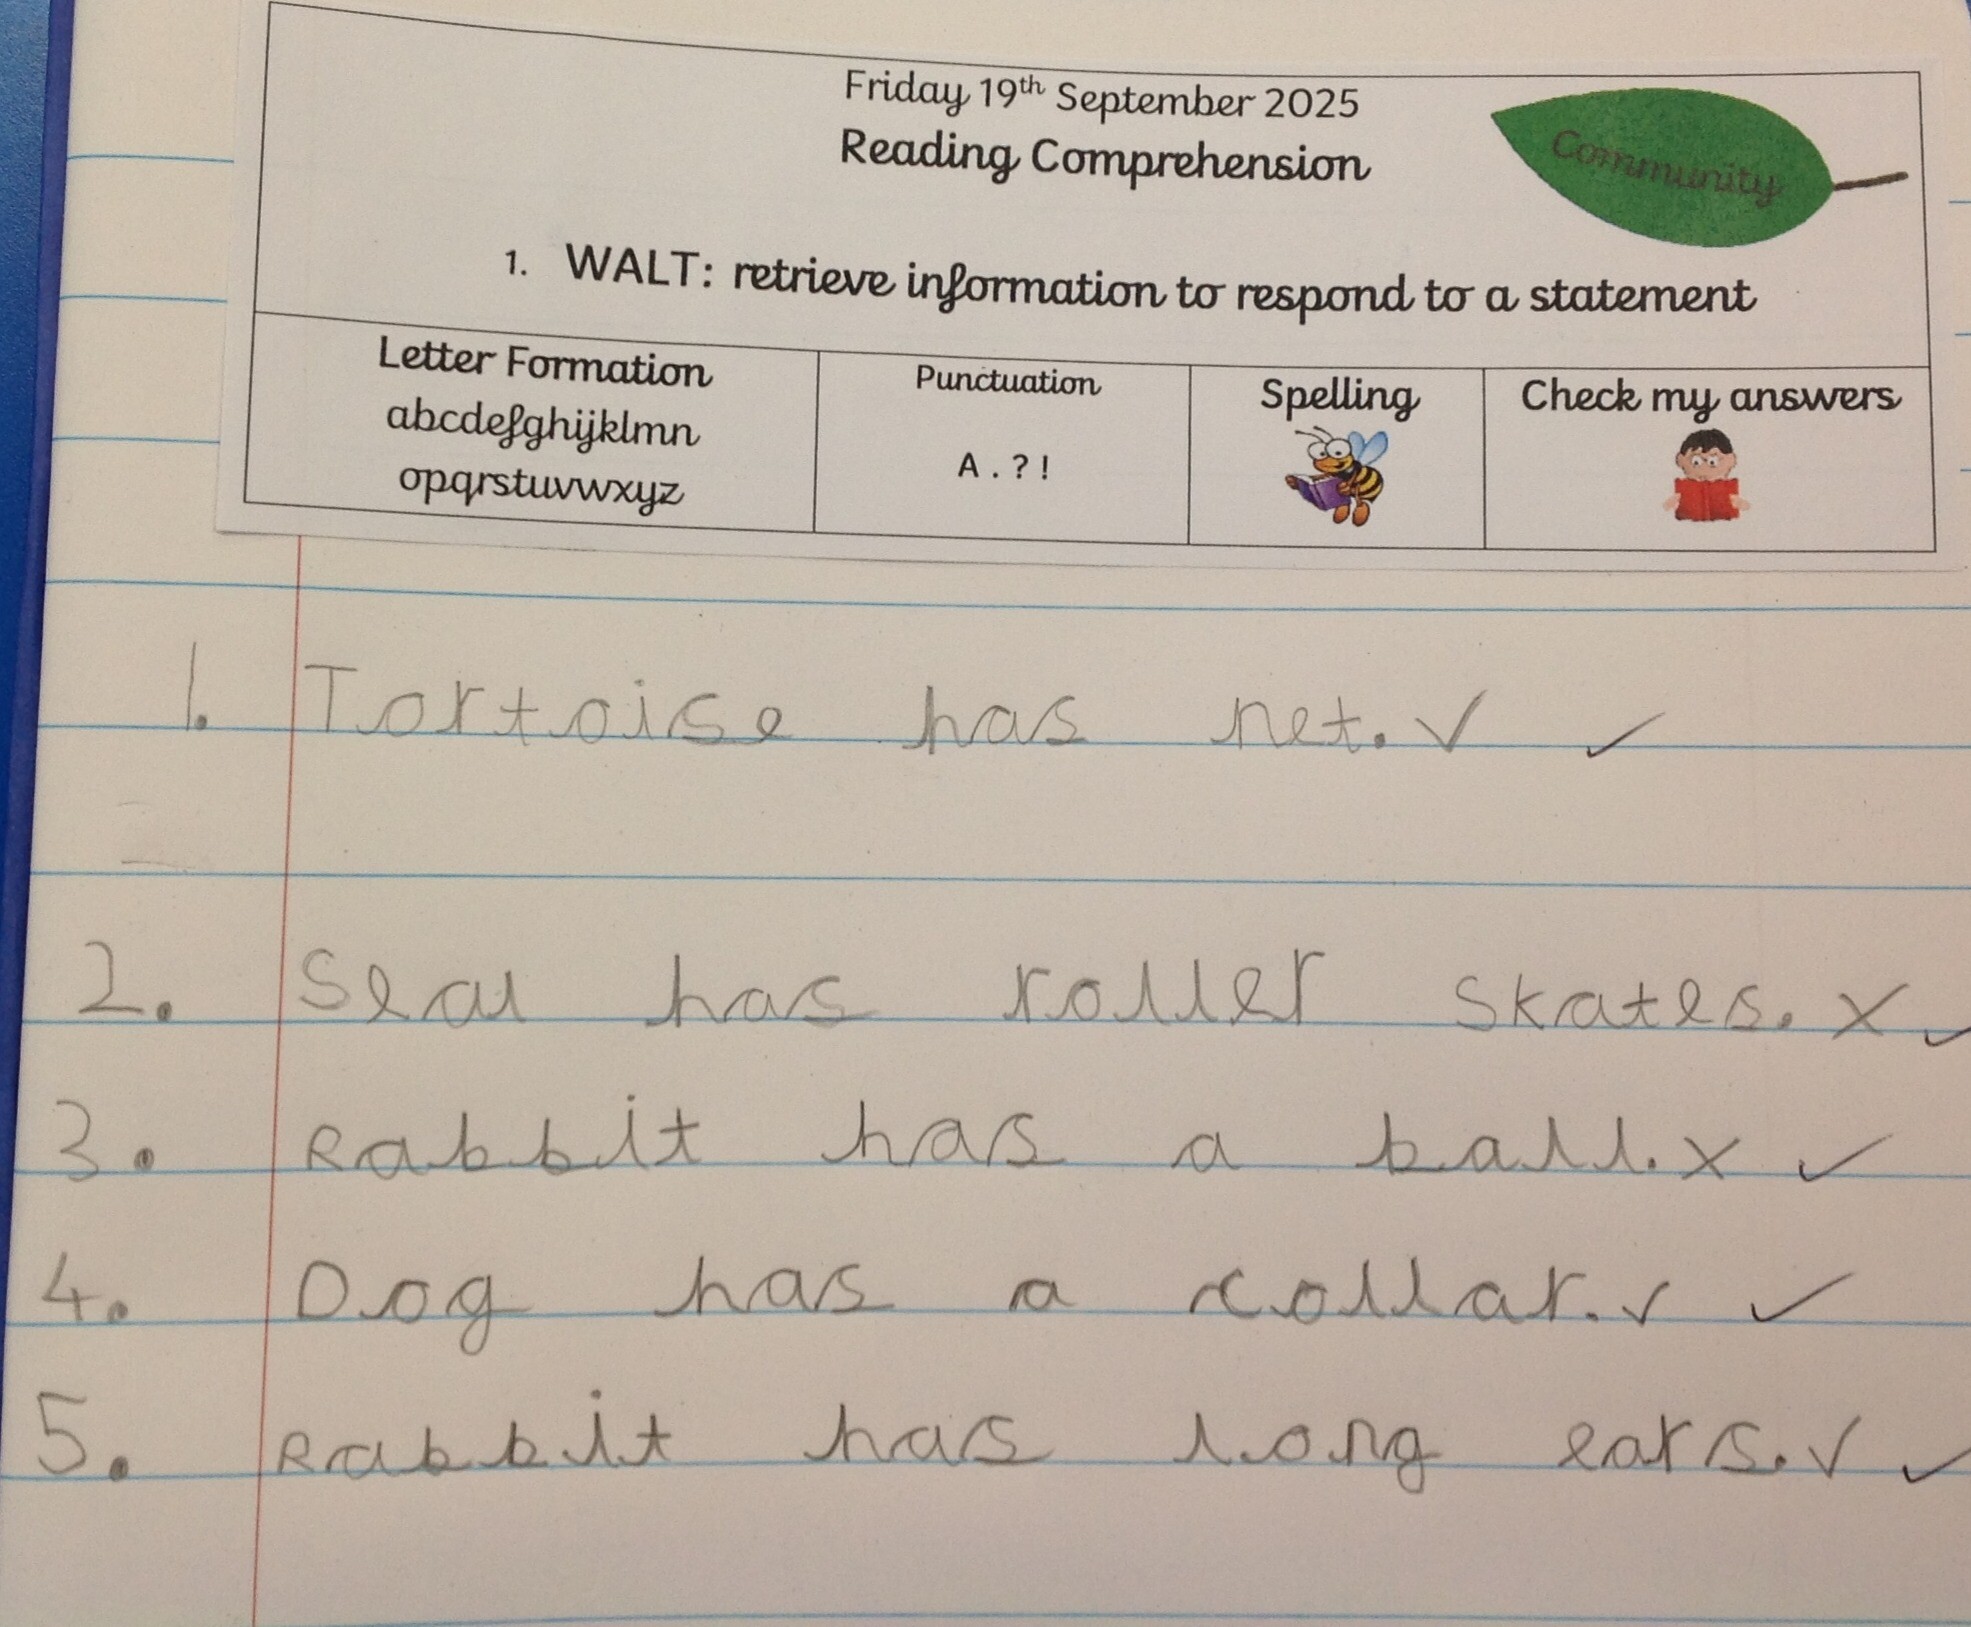 Friday 19th September 2025
Reading Comprehension
Community
1. WALT: retrieve information to respond to a statement
Letter Formation
abcdefghijklmn
opqrstuvwxyz
Punctuation
A . ? !
Spelling
Check my answers
1. Tortoise has net. ✓ ✓
2. Seal has roller skates. x ✓
3. Rabbit has a ball. x ✓
4. Dog has a collar. ✓ ✓
5. Rabbit has long ears. ✓ ✓